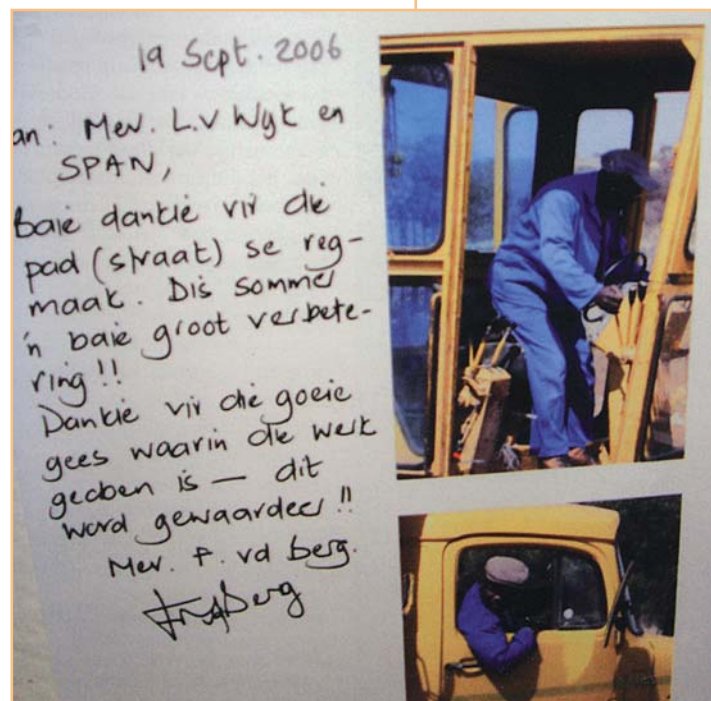 19 Sept. 2006
an: Mev. L.V Wyk en
SPAN,
Baie dankie vir die
pad (straat) se reg-
maak. Dis sommer
'n baie groot verbete-
ring!!
Dankie vir die goeie
gees waarin die werk
gedoen is — dit
word gewaardeer!!
Mev. F. vd Berg.